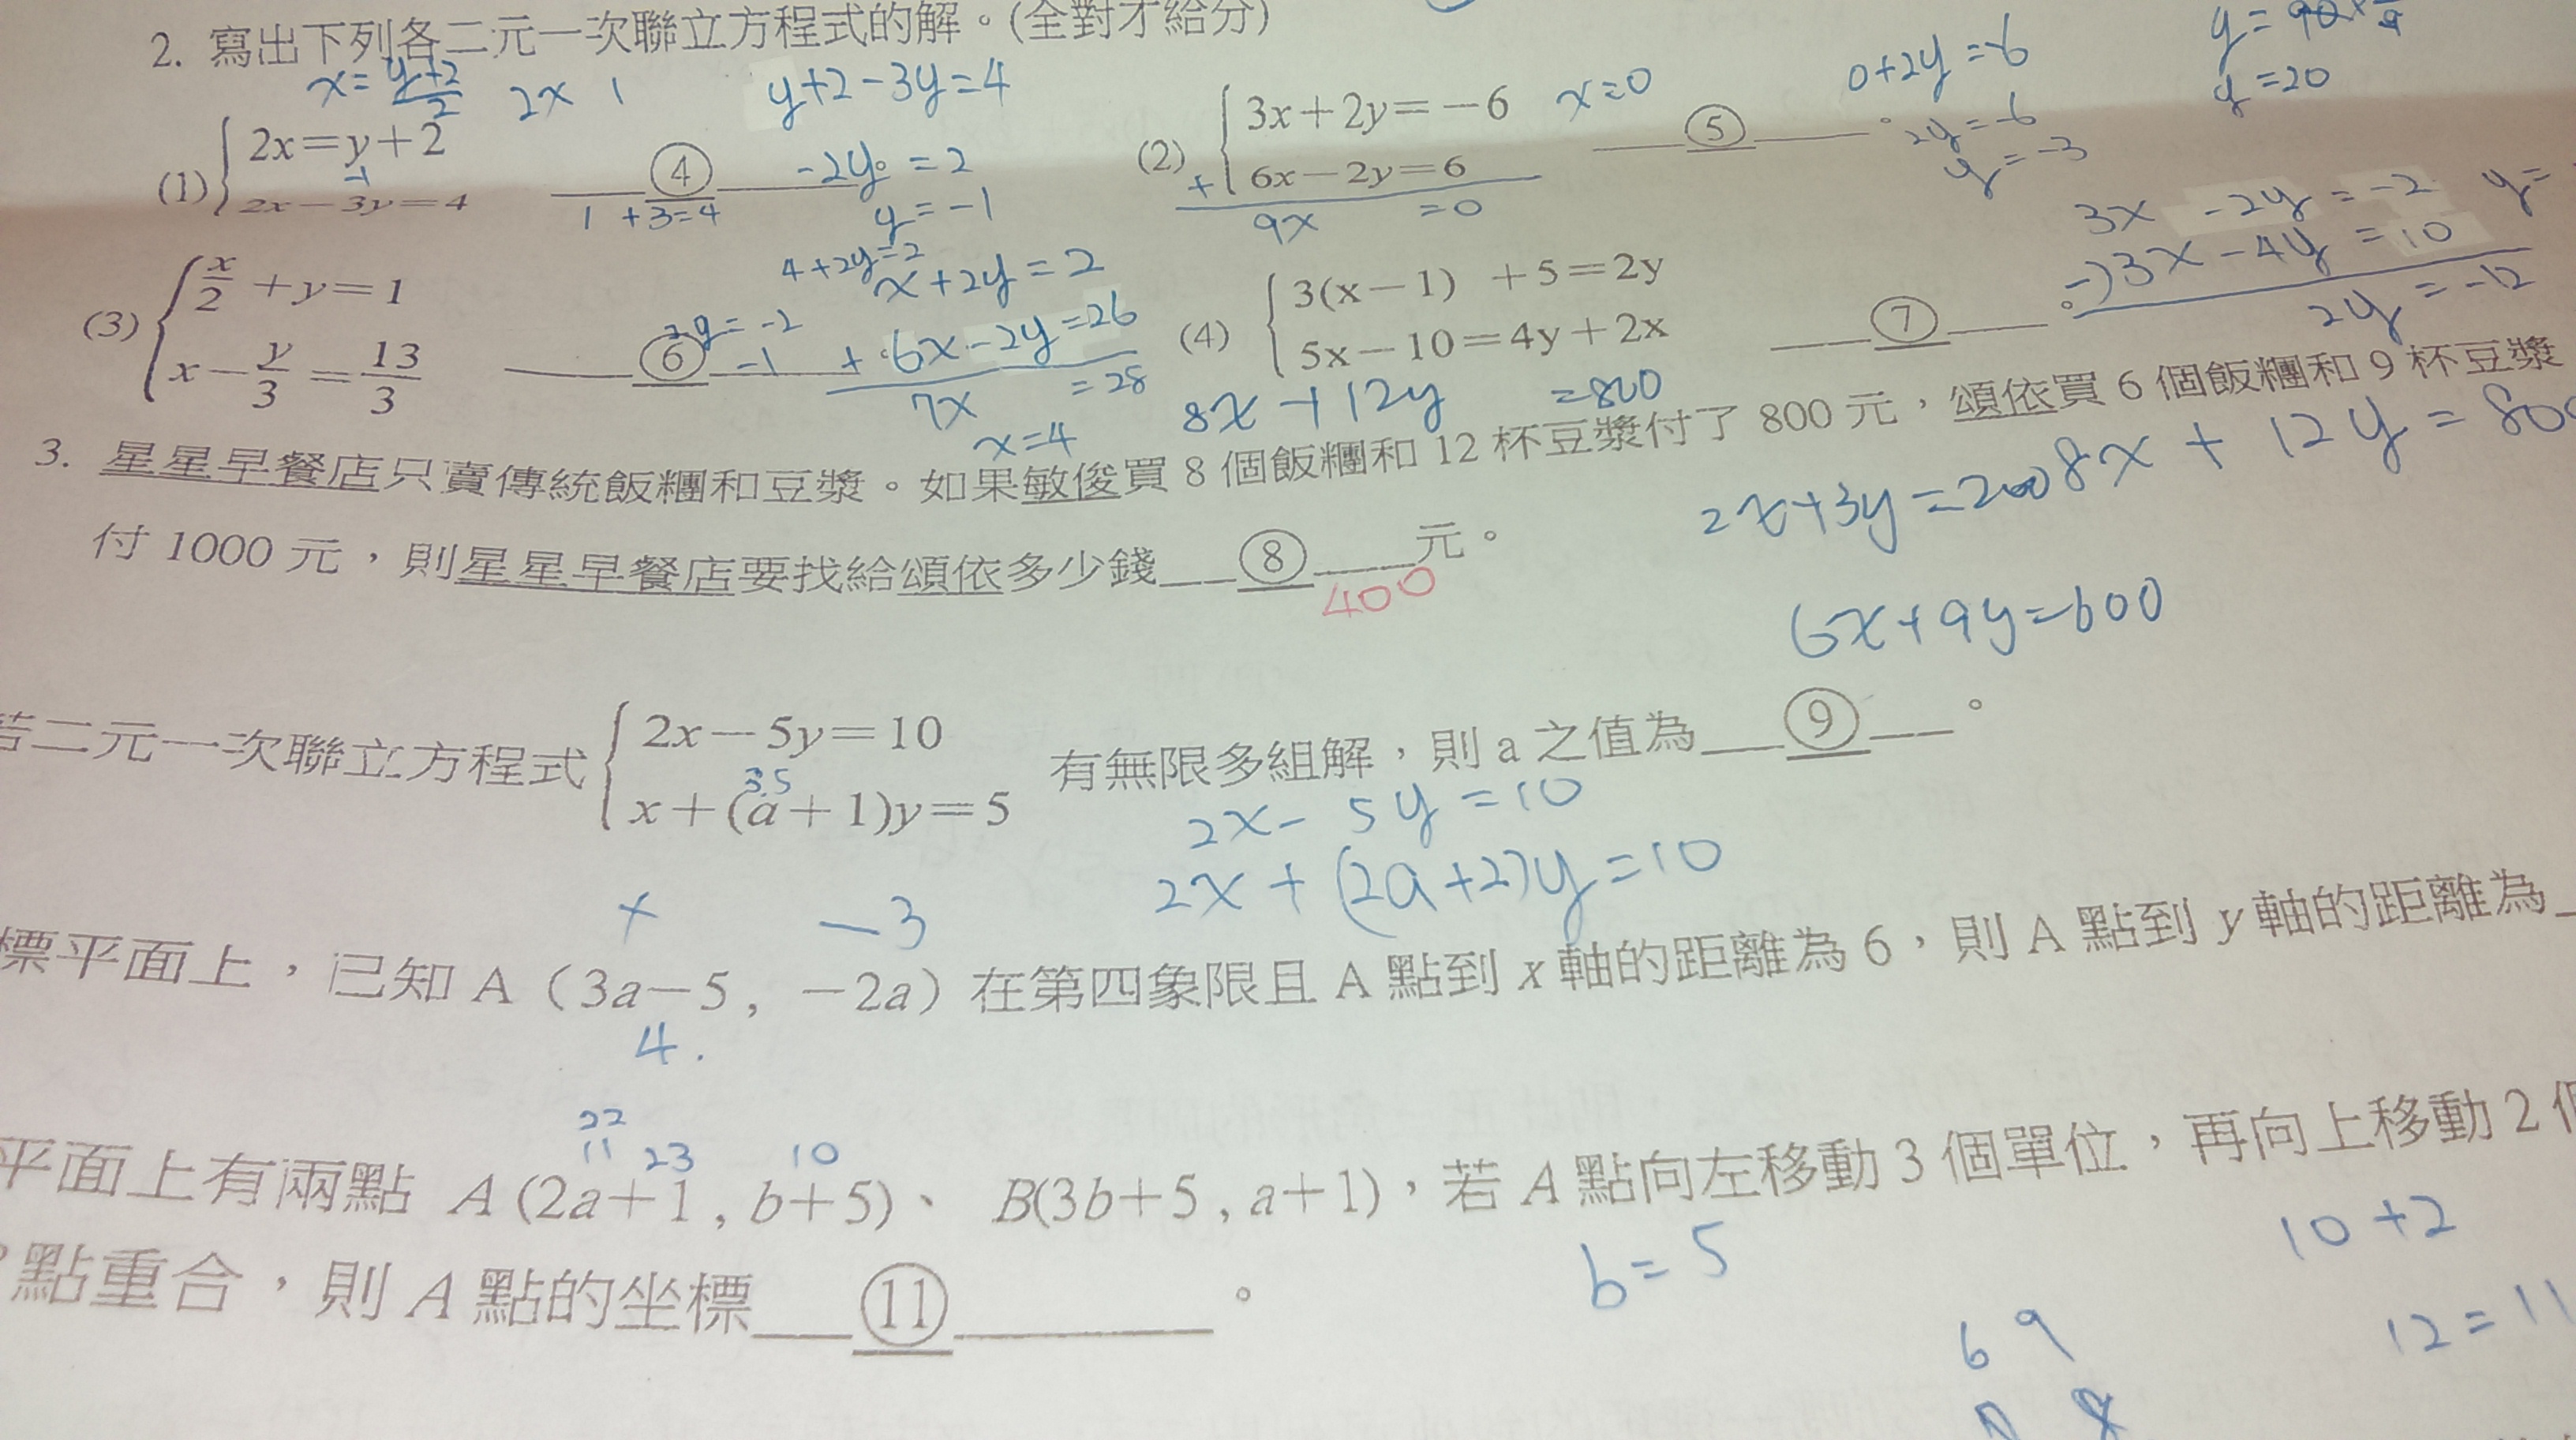 2. 寫出下列各二元一次聯立方程式的解。(全對才給分)
x=(y+2)/2 2x 1 y+2-3y=4
(1) 2x=y+2
2x-3y=4
-1
④ 。
1+3=4
-2y=2
y=-1
(2) 3x+2y=-6
6x-2y=6
+
9x =0
x=0
⑤ 。
0+2y=-6
2y=-6
y=-3
y=20
(3) x/2+y=1
x-y/3=13/3
⑥ 。
4+2y=2
2y=-2
-1
x+2y=2
+ 6x-2y=26
7x =28
x=4
(4) 3(x-1) +5=2y
5x-10=4y+2x
⑦ 。
3x -2y=-2
-)3x-4y=10
2y=-12
8x+12y =800
3. 星星早餐店只賣傳統飯糰和豆漿。如果敏俊買 8 個飯糰和 12 杯豆漿付了 800 元,頌依買 6 個飯糰和 9 杯豆漿
付 1000 元,則星星早餐店要找給頌依多少錢 ⑧ 元。
400
2x+3y=200
8x+12y=800
6x+9y=600
若二元一次聯立方程式 2x-5y=10
x+(a+1)y=5
3.5
有無限多組解,則 a 之值為 ⑨ 。
2x-5y=10
2x+(2a+2)y=10
+ -3
標平面上,已知 A(3a-5,-2a)在第四象限且 A 點到 x 軸的距離為 6,則 A 點到 y 軸的距離為
4.
22
11 23 10
平面上有兩點 A(2a+1,b+5)、 B(3b+5,a+1),若 A 點向左移動 3 個單位,再向上移動 2 個
b=5
10+2
點重合,則 A 點的坐標 ⑪ 。
12=11
6 9